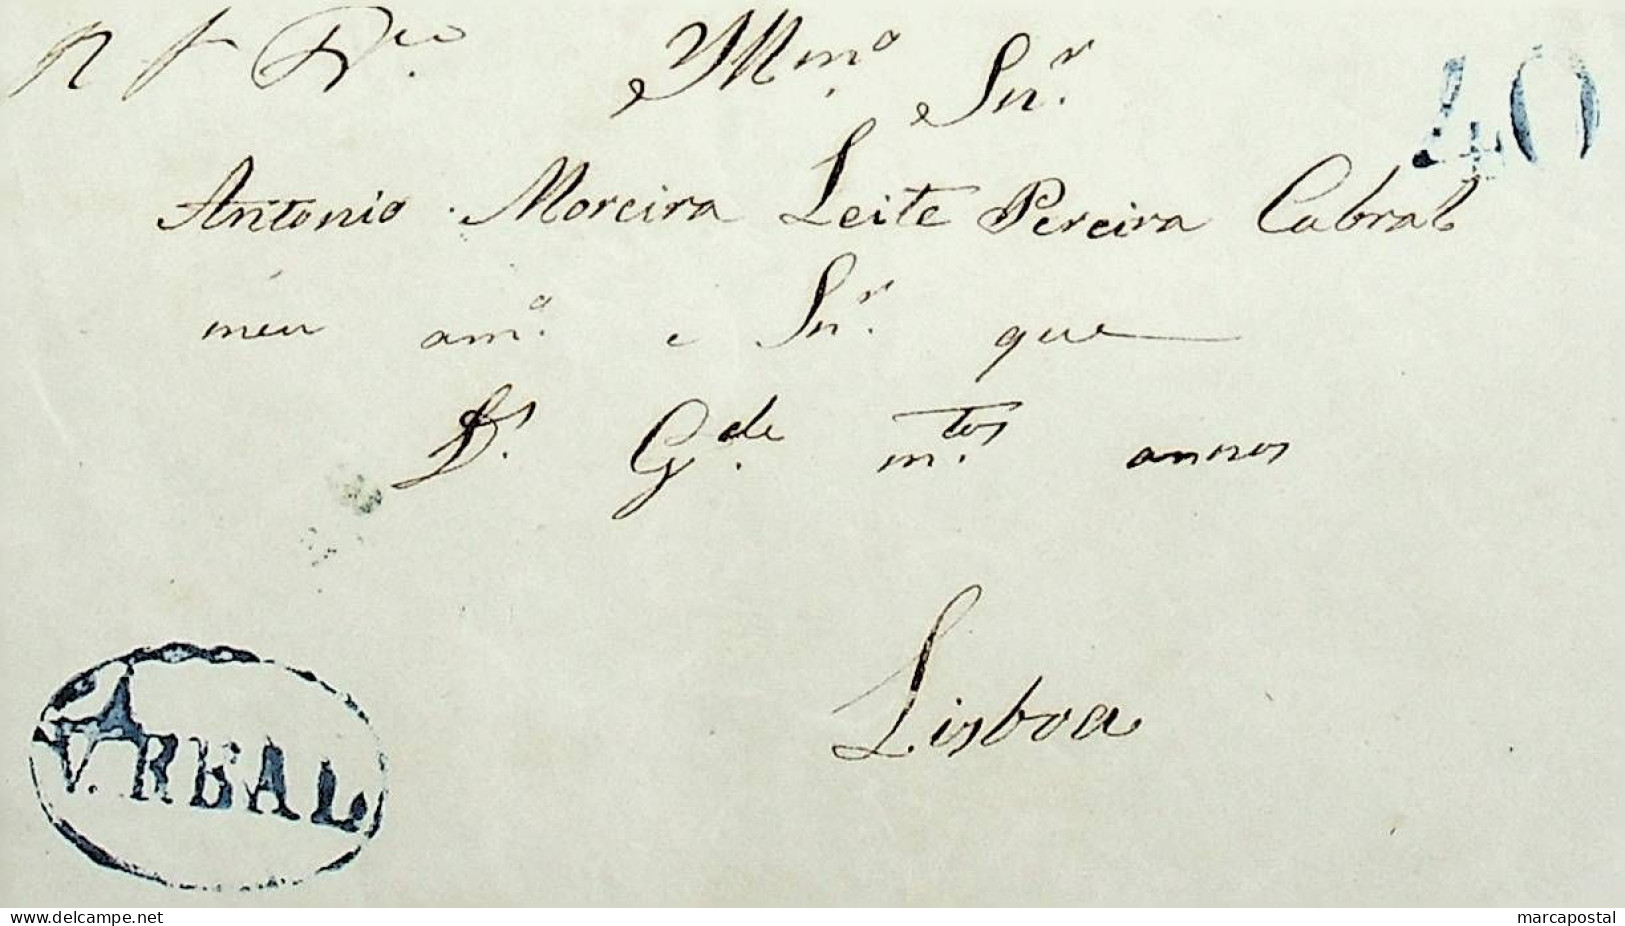 Illmo Snr. 40
Antonio Moreira Leite Pereira Cabral
meu amo. e Snr. que
D. Gde. mtos. annos
Lisboa
V. REAL
www.delcampe.net
marcapostal